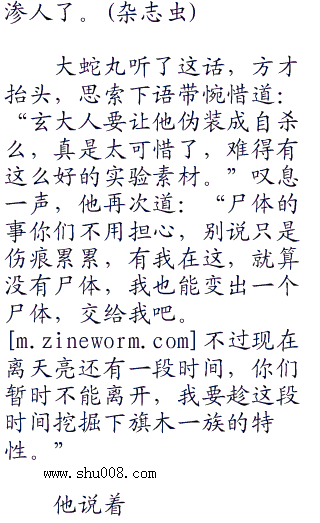 渗人了。(杂志虫)
大蛇丸听了这话，方才
抬头，思索下语带惋惜道：
“玄大人要让他伪装成自杀
么，真是太可惜了，难得有
这么好的实验素材。”叹息
一声，他再次道：“尸体的
事你们不用担心，别说只是
伤痕累累，有我在这，就算
没有尸体，我也能变出一个
尸体，交给我吧。
[m.zineworm.com]不过现在
离天亮还有一段时间，你们
暂时不能离开，我要趁这段
时间挖掘下旗木一族的特
性。”
www.shu008.com
他说着